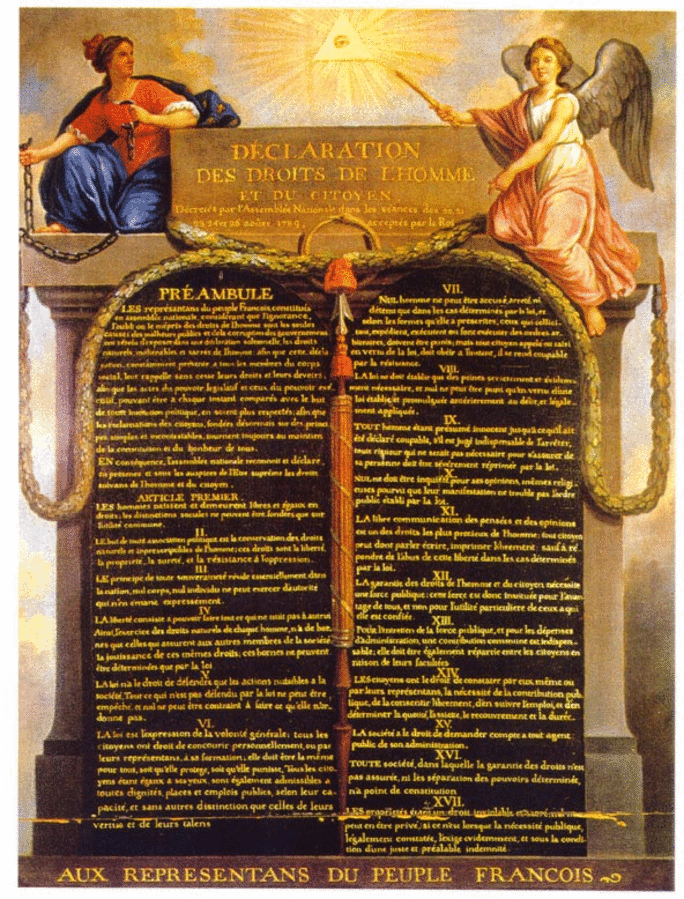 DÉCLARATION
DES DROITS DE L'HOMME
ET DU CITOYEN,
Décretés par l'Assemblée Nationale dans les séances des 20, 21
23, 24 et 26 août 1789, acceptés par le Roi
PRÉAMBULE
LES représentans du peuple François constitués
en assemblée nationale, considérant que l'ignorance,
l'oubli ou le mépris des droits de l'homme sont les seules
causes des malheurs publics et de la corruption des gouvernemens
ont résolu d'exposer dans une déclaration solemnelle, les droits
naturels, inaliénables et sacrés de l'homme, afin que cette décla
ration, constamment présente à tous les membres du corps
social, leur rappelle sans cesse leurs droits et leurs devoirs;
afin que les actes du pouvoir législatif et ceux du pouvoir exé
cutif, pouvant être à chaque instant comparés avec le but
de toute institution politique, en soient plus respectés; afin que
les réclamations des citoyens, fondées désormais sur des princi
pes simples et incontestables, tournent toujours au maintien
de la constitution et du bonheur de tous.
EN conséquence, l'assemblée nationale reconnoit et déclare,
en présence et sous les auspices de l'Etre suprême les droits
suivans de l'homme et du citoyen.
ARTICLE PREMIER.
LES hommes naissent et demeurent libres et égaux en
droits; les distinctions sociales ne peuvent être fondées que sur
l'utilité commune.
II.
LE but de toute association politique est la conservation des droits
naturels et imprescriptibles de l'homme; ces droits sont la liberté,
la propriété, la sureté, et la résistance à l'oppression.
III.
LE principe de toute souveraineté réside essentiellement dans
la nation, nul corps, nul individu ne peut exercer d'autorité
qui n'en émane expressément.
IV.
LA liberté consiste à pouvoir faire tout ce qui ne nuit pas à autrui
Ainsi, l'exercice des droits naturels de chaque homme, n'a de bor-
nes que celles qui assurent aux autres membres de la société
la jouissance de ces mêmes droits; ces bornes ne peuvent
être déterminées que par la loi
V.
LA loi n'a le droit de défendre que les actions nuisibles à la
société. Tout ce qui n'est pas défendu par la loi ne peut être
empêché, et nul ne peut être contraint à faire ce qu'elle n'or-
donne pas.
VI.
LA loi est l'expression de la volonté générale; tous les
citoyens ont droit de concourir personnellement, ou par
leurs représentans, à sa formation; elle doit être la même
pour tous, soit qu'elle protege, soit qu'elle punisse, Tous les cito-
yens étant égaux à ses yeux, sont également admissibles à
toutes dignités, places et emplois publics, selon leur ca-
pacité, et sans autres distinction que celles de leurs
vertus et de leurs talens
VII.
NUL homme ne peut être accusé, arreté, ni
détenu que dans les cas déterminés par la loi, et
selon les formes qu'elle a prescrites, ceux qui sollici-
tent, expédient, exécutent ou font exécuter des ordres ar-
bitraires, doivent être punis; mais tout citoyen appelé ou saisi
en vertu de la loi, doit obéir à l'instant, il se rend coupable
par la résistance.
VIII.
LA loi ne doit établir que des peines strictement et évidem-
ment nécessaire, et nul ne peut être puni qu'en vertu d'une
loi établie et promulguée antérieurement au délit, et légale-
ment appliquée.
IX.
TOUT homme étant présumé innocent jusqu'à ce qu'il ait
été déclaré coupable, s'il est jugé indispensable de l'arrêter,
toute rigueur qui ne serait pas nécessaire pour s'assurer de
sa personne doit être sévèrement réprimée par la loi.
X.
NUL ne doit être inquiété pour ses opinions, mêmes religi-
euses pourvu que leur manifestation ne trouble pas l'ordre
public établi par la loi.
XI.
LA libre communication des pensées et des opinions
est un des droits les plus precieux de l'homme; tout citoyen
peut donc parler écrire, imprimer librement: sauf à ré-
pondre de l'abus de cette liberté dans les cas déterminés
par la loi.
XII.
LA garantie des droits de l'homme et du citoyen nécessite
une force publique; cette force est donc instituée pour l'avan-
tage de tous, et non pour l'utilité particuliere de ceux a qui
elle est confiée.
XIII.
Pour l'entretien de la force publique, et pour les dépenses
d'administration, une contribution commune est indispen-
sable; elle doit être également répartie entre les citoyens en
raison de leurs facultées
XIV.
LES citoyens ont le droit de constater par eux même ou
par leurs représentans, la nécessité de la contribution pub-
lique, de la consentir librement, d'en suivre l'emploi, et d'en
déterminer la quotité, l'assiette, le recouvrement et la durée.
XV.
LA société a le droit de demander compte a tout agent
public de son administration.
XVI.
TOUTE société, dans laquelle la garantie des droits n'est
pas assurée, ni les séparation des pouvoirs déterminée,
n'a point de constitution
XVII.
LES propriétés étant un droit inviolable et sacré, nul ne
peut en être privé, si ce n'est lorsque la nécessité publique,
légalement constatée, l'exige evidemment, et sous la condi-
tion d'une juste et préalable indemnité.
AUX REPRESENTANS DU PEUPLE FRANCOIS